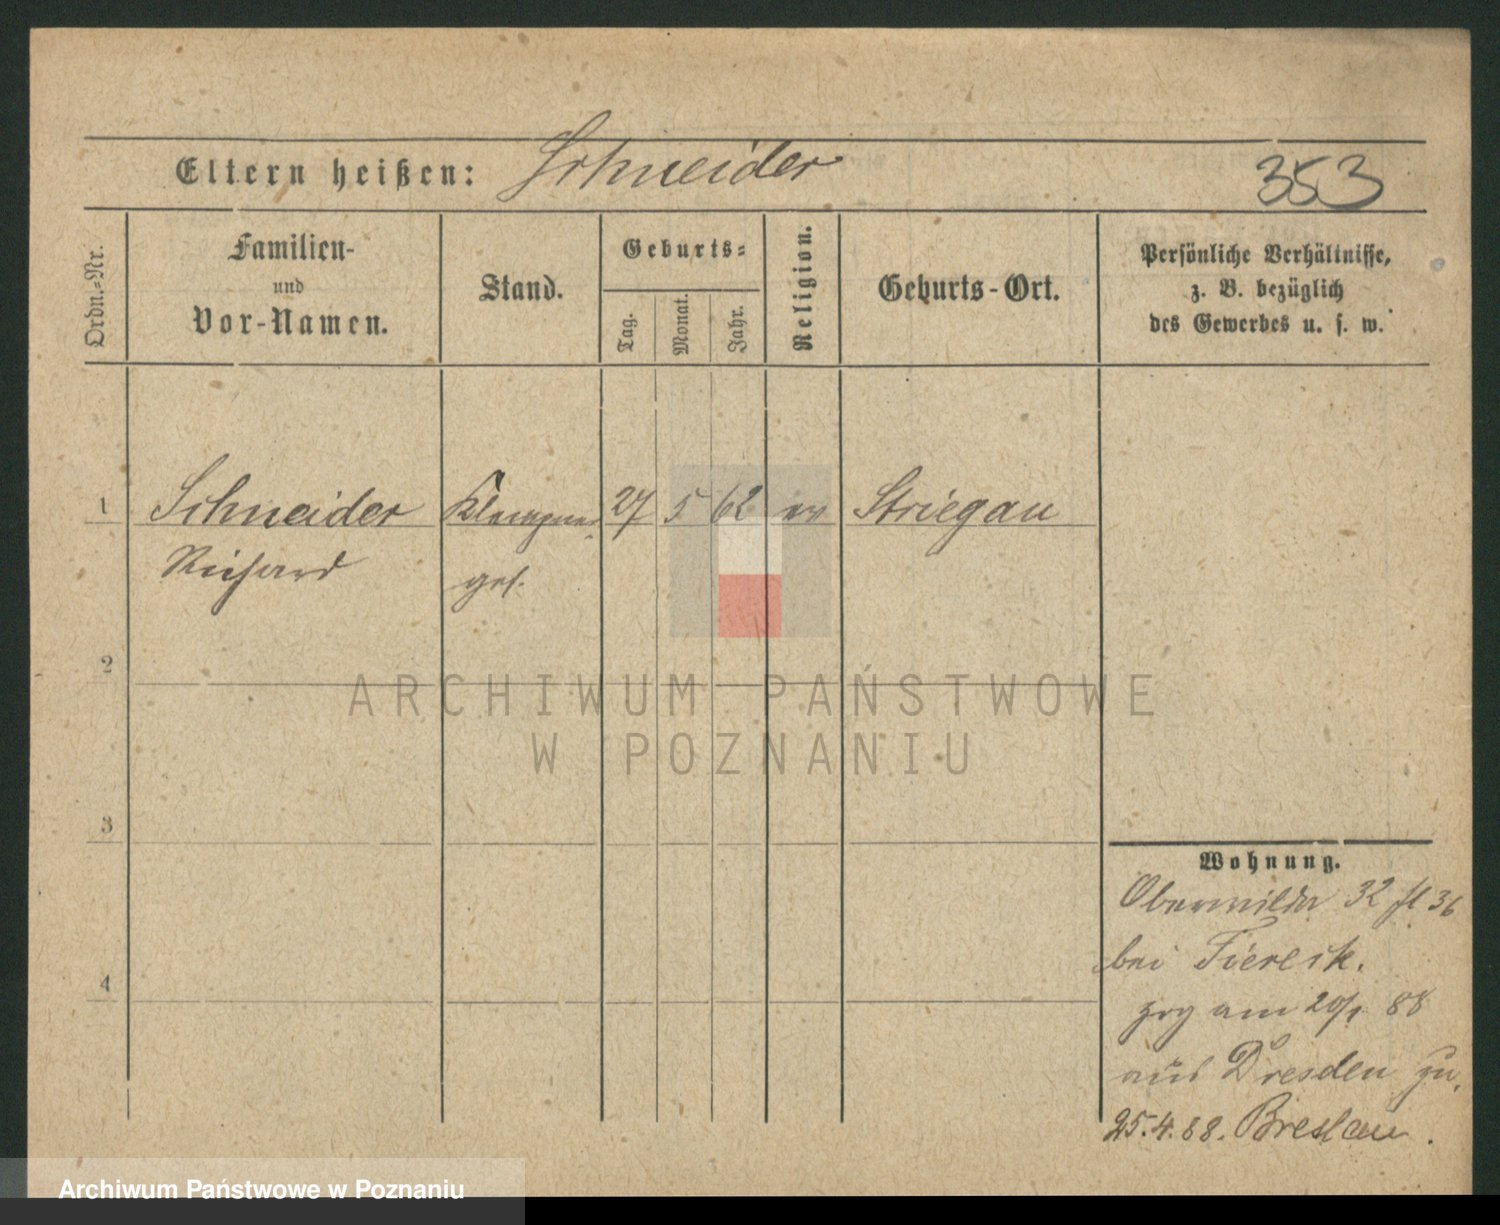 Eltern heißen: Schneider
353
Ordn.-Nr.
Familien-
und
Vor-Namen.
Stand.
Geburts-
Tag.
Monat.
Jahr.
Religion.
Geburts-Ort.
Persönliche Verhältnisse,
z. B. bezüglich
des Gewerbes u. s. w.
1 Schneider Klempner 27 5 62 ev Striegau
Richard ges.
2
3
4
ARCHIWUM PAŃSTWOWE
W POZNANIU
Wohnung.
Oberwilda 32 36
bei Tiereck.
zog am 20/1 88
aus Dresden zu.
25.4.88. Breslau.
Archiwum Państwowe w Poznaniu